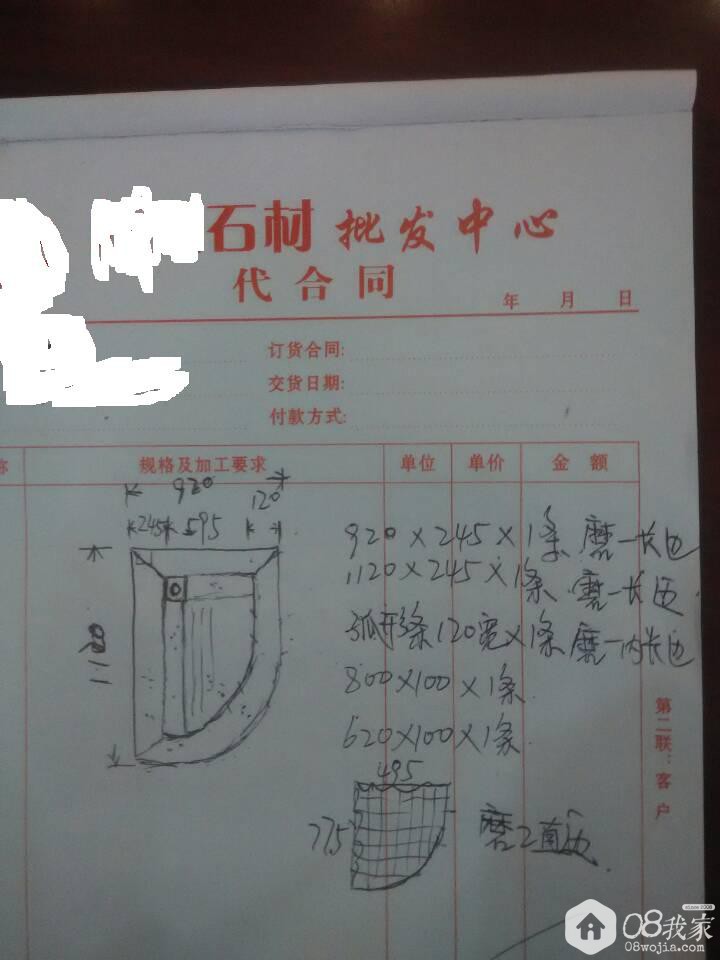 石材批发中心
代合同
年 月 日
订货合同:
交货日期:
付款方式:
称 规格及加工要求 单位 单价 金额
920
120
245 595
1120
920×245×1条 磨一长边
1120×245×1条 磨一长边
弧形条120宽×1条 磨一内长边
800×100×1条
620×100×1条
495
775
磨2直边
第二联:客户
08我家
08wojia.com